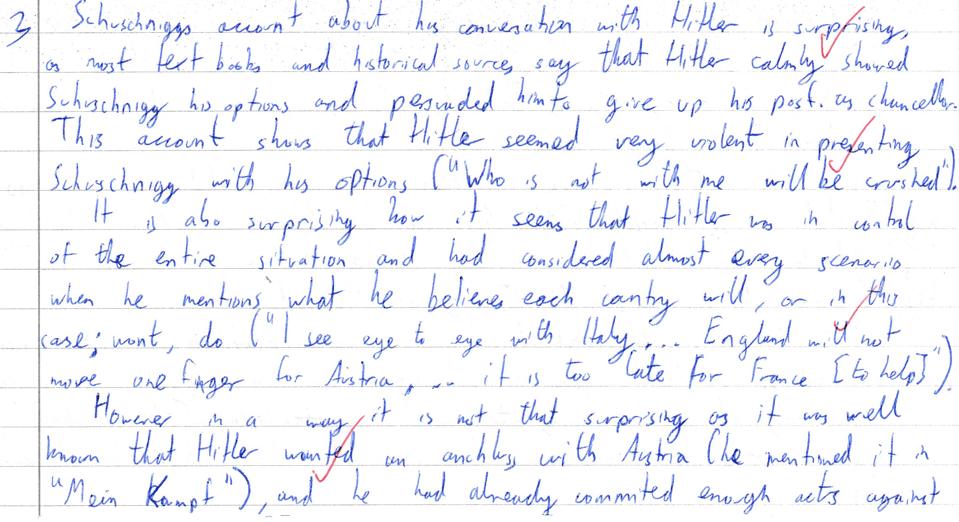 3 Schuschniggs account about his conversation with Hitler is surprising,
as most text books and historical sources say that Hitler calmly showed
Schuschnigg his options and persuaded him to give up his post. as chancellor.
This account shows that Hitler seemed very violent in presenting
Schuschnigg with his options ("Who is not with me will be crushed").
It is also surprising how it seems that Hitler was in control
of the entire situation and had considered almost every scenario
when he mentions what he believes each country will, or in this
case; wont, do ("I see eye to eye with Italy... England will not
move one finger for Austria, ... it is too late for France [to help]").
However in a way it is not that surprising as it was well
known that Hitler wanted an anchluss with Austria (he mentioned it in
"Mein Kampf"), and he had already commited enough acts against